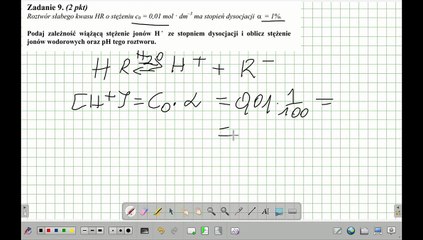 Zadanie 9. (2 pkt)
Roztwór słabego kwasu HR o stężeniu c₀ = 0,01 mol · dm⁻³ ma stopień dysocjacji α = 1%.
Podaj zależność wiążącą stężenie jonów H⁺ ze stopniem dysocjacji i oblicz stężenie
jonów wodorowych oraz pH tego roztworu.
HR ⇌ H₂O H⁺ + R⁻
[H⁺] = C₀ · α = 0,01 · 1/100 =
=